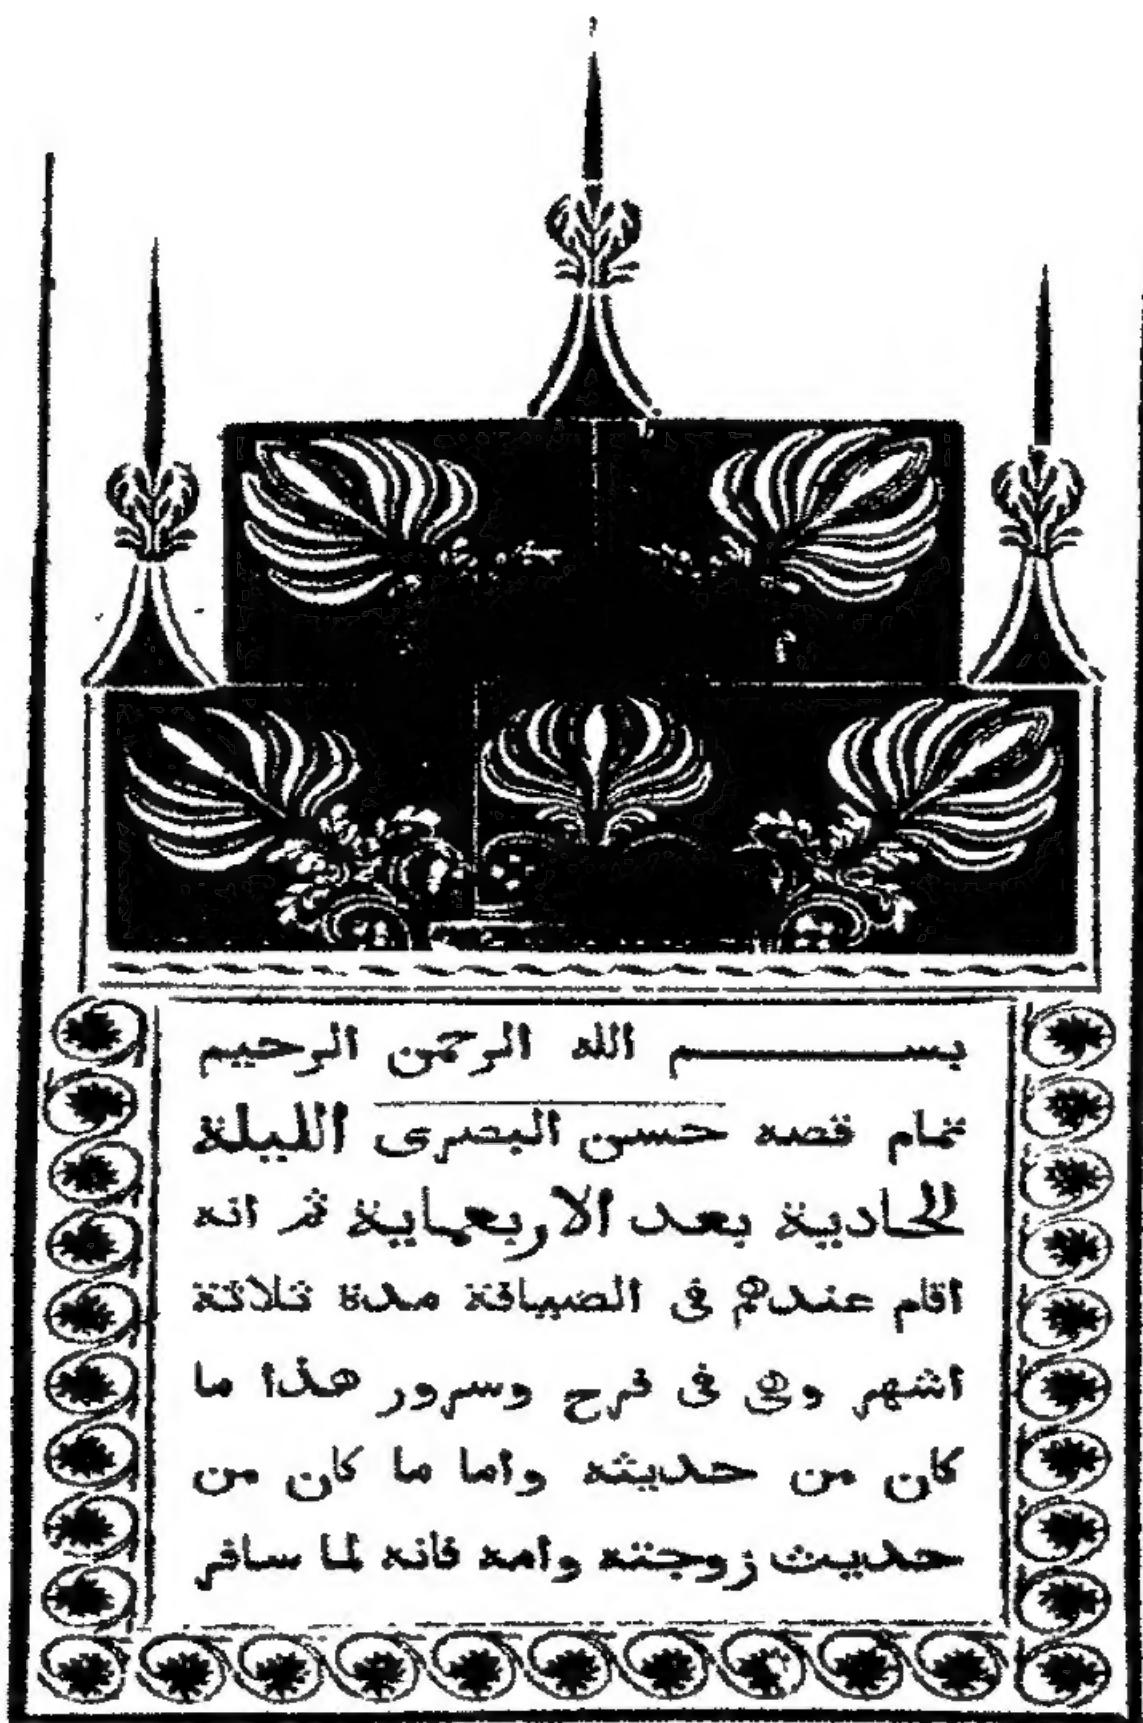 بســـــــــم الله الرحمن الرحيم
تمام قصه حسن البصرى الليلة
الحادية بعد الاربعماية ثم انه
اقام عندهم فى الضيافة مدة ثلاثة
اشهر وهى فى فرح وسرور هذا ما
كان من حديثه واما ما كان من
حديث زوجته وامه فانه لما سافر